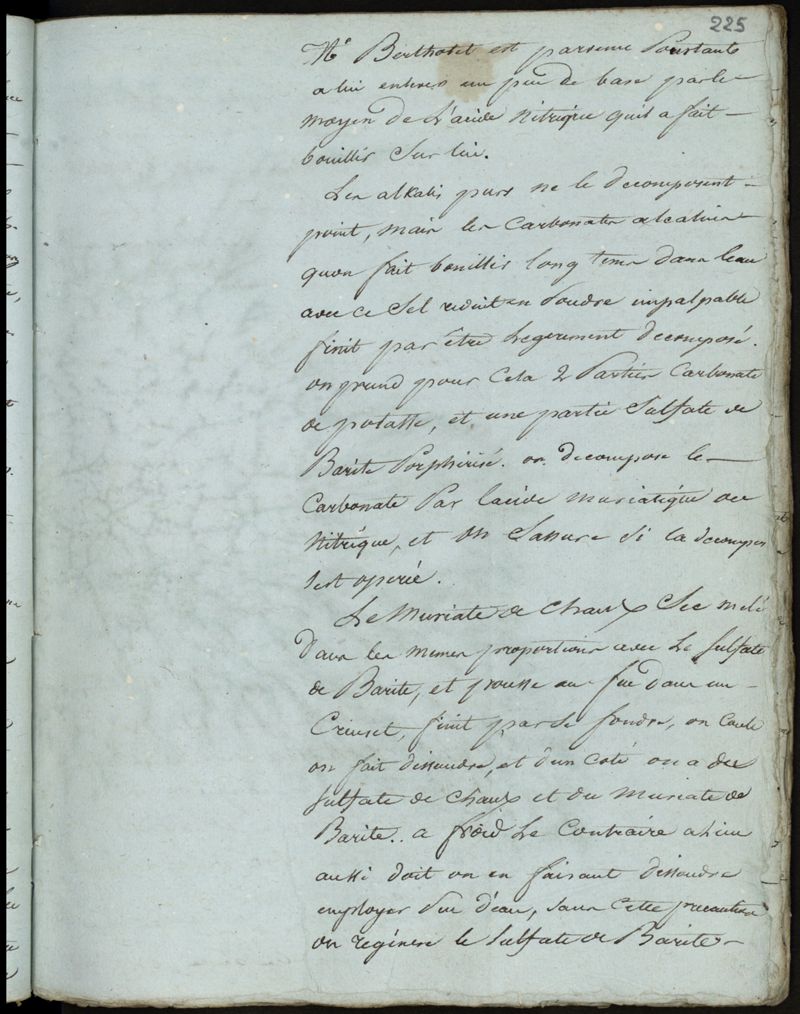 225
Mr Berthotet est parvenu Pourtant
a lui enlever un peu de base par le
moyen de l'acide Nitrique quil a fait
bouillir Sur lui.
Les alkalis purs ne le decomposent
point, mais les Carbonates alcalins
quon fait bouillir long tems dans leau
avec ce Sel reduit en Poudre impalpable
finit par être Legerement decomposé.
on prend pour Cela 2 Parties Carbonate
de potasse, et une partie Sulfate de
Barite Porphirisé. on decompose le
Carbonate Par lacide muriatique ou
Nitrique, et on Sassure Si la decompon
sest operée.
Le Muriate de Chaux Sec melé
Dans les memes proportions avec Le Sulfate
de Barite, et pousse au feu dans un
Creuset, finit par Se fondre, on Coule
on fait dissoudre, et d'un Coté on a du
Sulfate de Chaux et du Muriate de
Barite.. a froid Le Contraire a Lieu
aussi doit on en faisant dissoudre
employer peu d'eau, Sans Cette precaution
on regénere le Sulfate de Barite